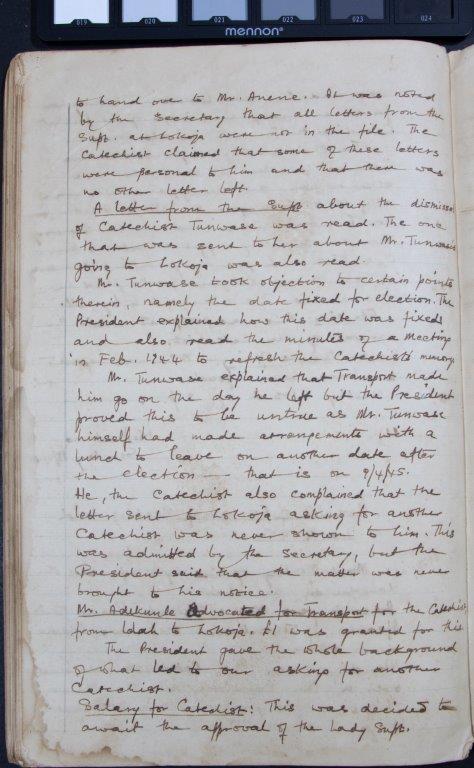 019 020 021 022 023 024
mennon
to hand over to Mr. Anene. It was noted
by the Secretary that all letters from the
Supt. at Lokoja were not in the file. The
Catechist claimed that some of these letters
were personal to him and that there was
no other letter left.
A letter from the Supt about the dismissal
of Catechist Tunwase was read. The one
that was sent to her about Mr. Tunwase
going to Lokoja was also read.
Mr. Tunwase took objection to certain points
therein, namely the date fixed for election. The
President explained how this date was fixed
and also read the minutes of a Meeting
in Feb. 1944 to refresh the Catechist's memory.
Mr. Tunwase explained that Transport made
him go on the day he left but the President
proved this to be untrue as Mr. Tunwase
himself had made arrangements with a
lunch to leave on another date after
the election — that is on 9/4/45.
He, the Catechist also complained that the
letter sent to Lokoja asking for another
Catechist was never shown to him. This
was admitted by the Secretary, but the
President said that the matter was never
brought to his notice.
Mr. Adekunle advocated for Transport for the Catechist
from Idah to Lokoja. £1 was granted for this
The President gave the whole background
of what led to our asking for another
Catechist.
Salary for Catechist: This was decided to
await the approval of the Lady Supt.